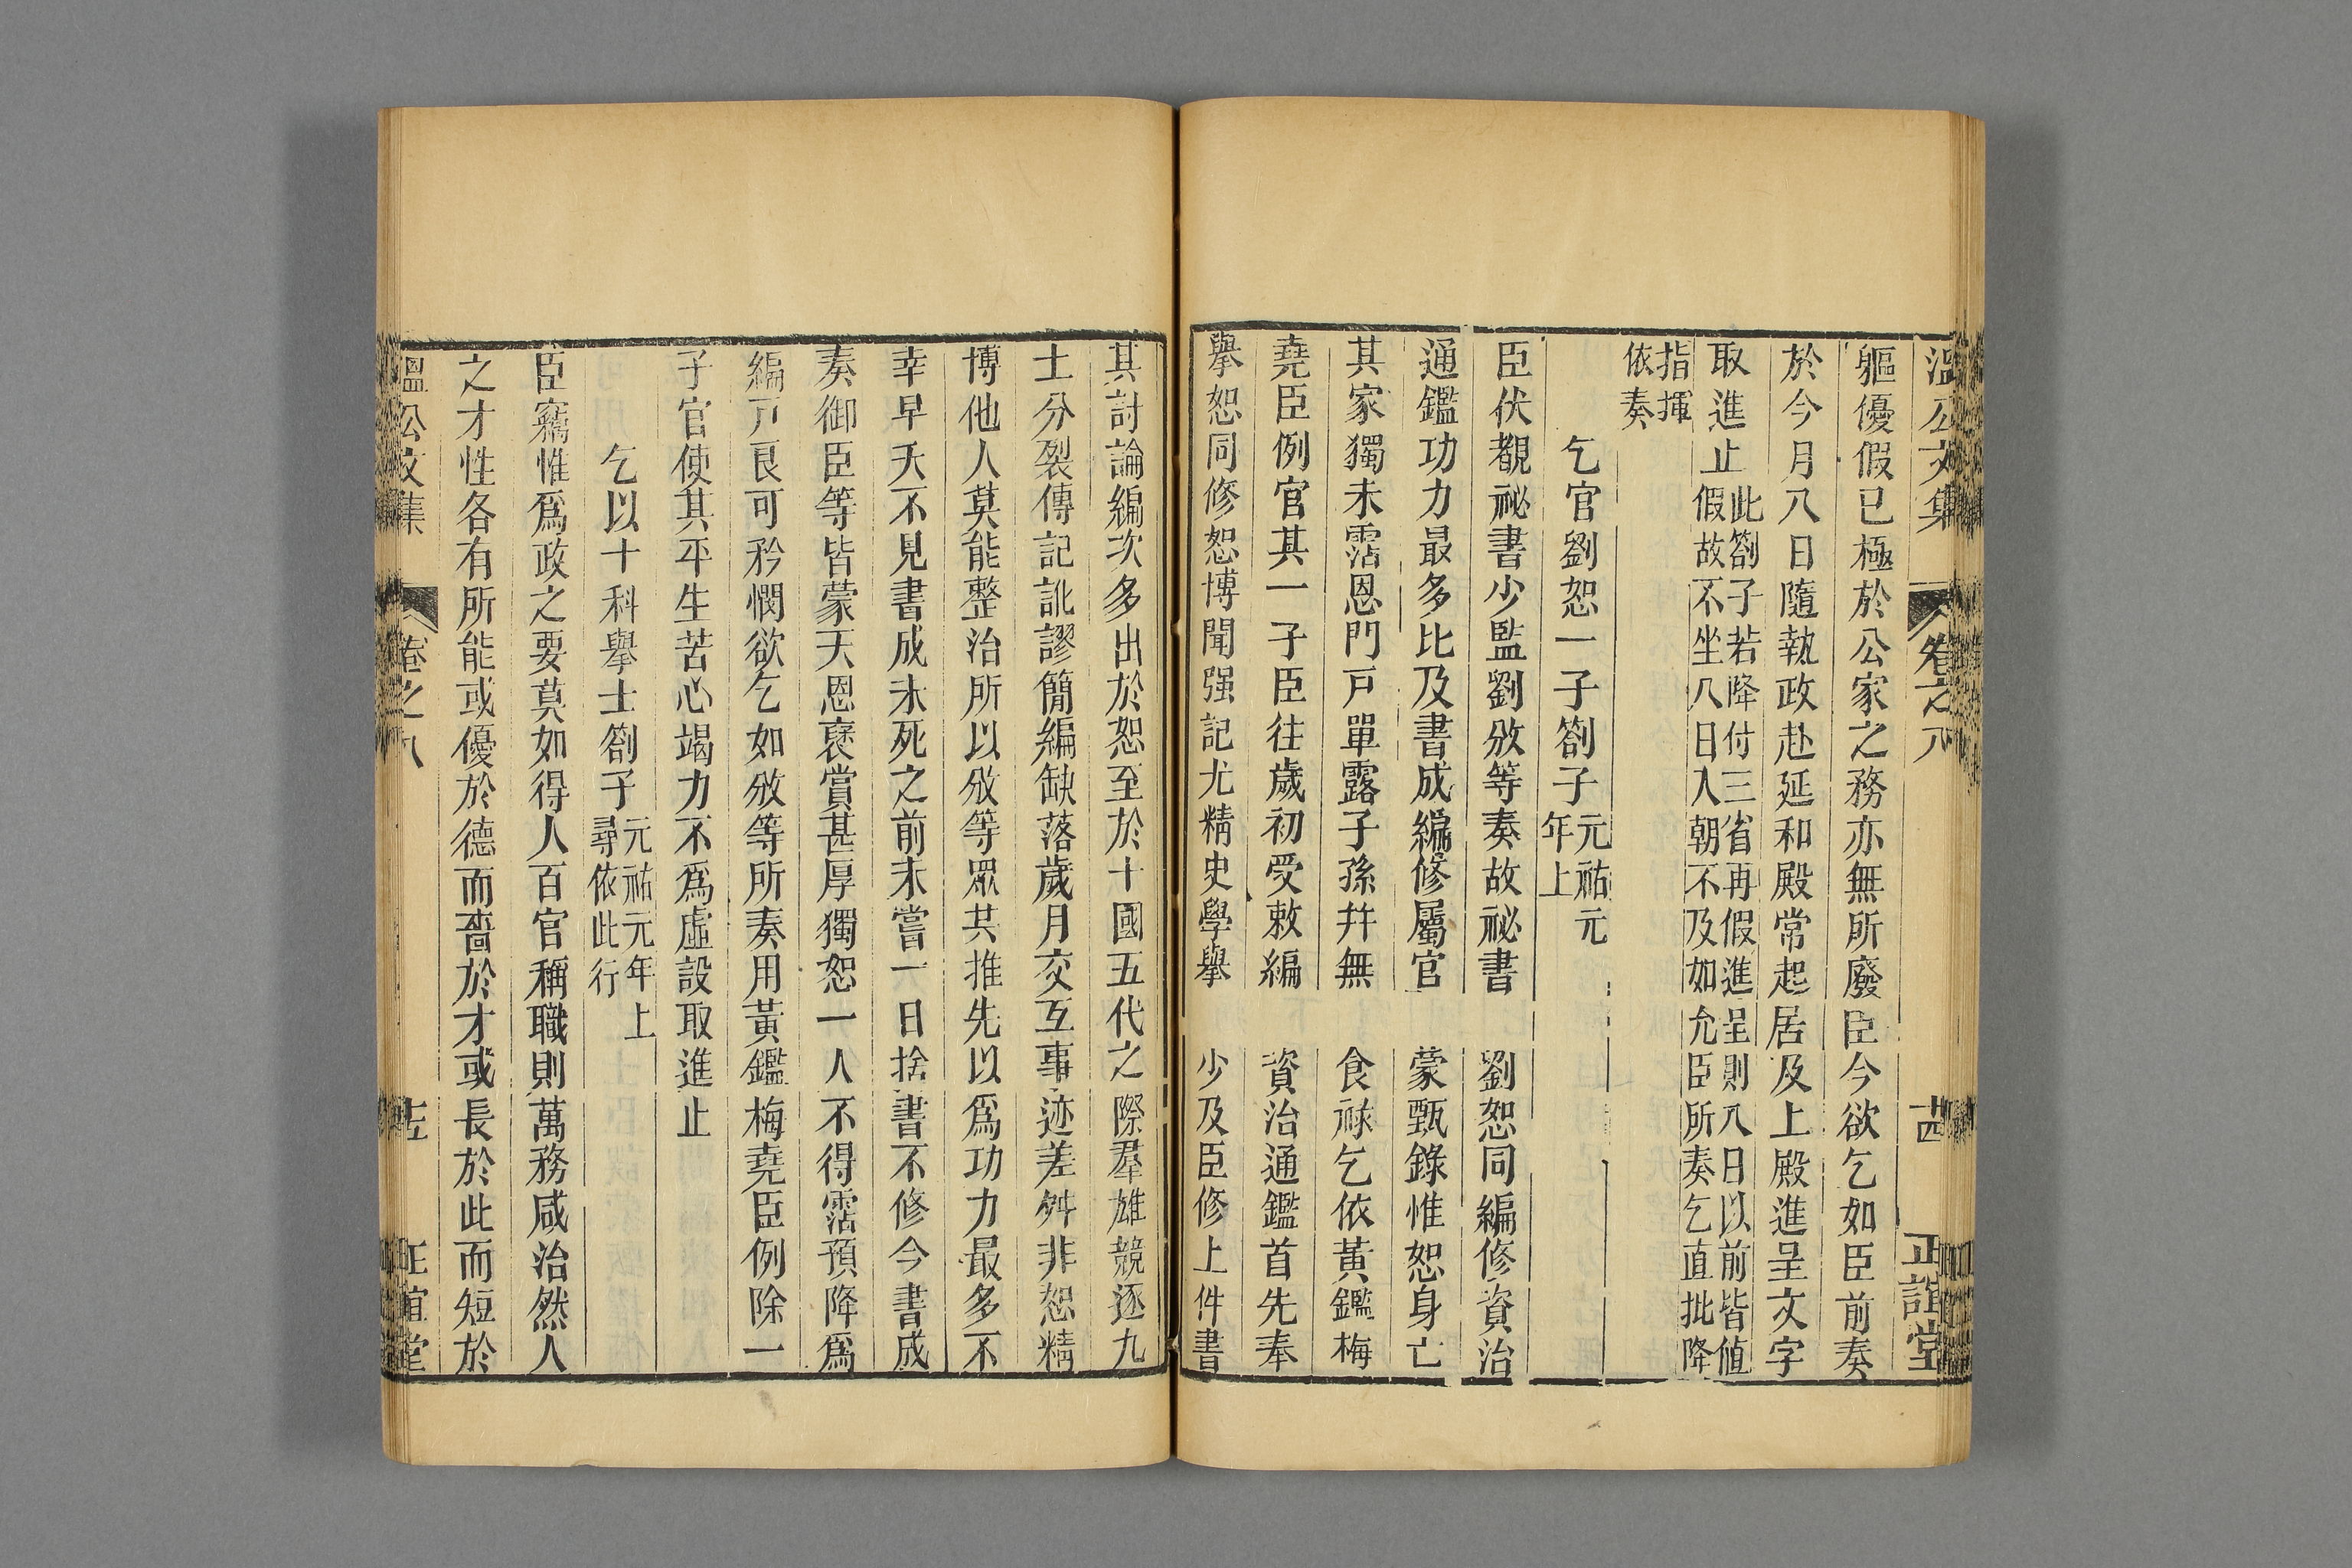 溫公文集 卷之八 十四 正誼堂
軀優假已極於公家之務亦無所廢臣今欲乞如臣前奏
於今月八日隨執政赴延和殿常起居及上殿進呈文字
取進止此劄子若降付三省再假進呈則八日以前皆値
假故不坐八日入朝不及如允臣所奏乞直批降
指揮
依奏
乞官劉恕一子劄子元祐元
年上
臣伏覩祕書少監劉攽等奏故祕書 劉恕同編修資治
通鑑功力最多比及書成編修屬官 蒙甄錄惟恕身亡
其家獨未霑恩門戸單露子孫幷無 食祿乞依黃鑑梅
堯臣例官其一子臣往歲初受敕編 資治通鑑首先奉
擧恕同修恕博聞强記尤精史學擧 少及臣修上件書
其討論編次多出於恕至於十國五代之際羣雄競逐九
士分裂傳記訛謬簡編缺落歲月交互事迹差舛非恕精
博他人莫能整治所以攽等眾共推先以爲功力最多不
幸早夭不見書成未死之前未嘗一日捨書不修今書成
奏御臣等皆蒙天恩襃賞甚厚獨恕一人不得霑預降爲
編戸良可矜憫欲乞如攽等所奏用黃鑑梅堯臣例除一
子官使其平生苦心竭力不爲虛設取進止
乞以十科擧士劄子元祐元年上
尋依此行
臣竊惟爲政之要莫如得人百官稱職則萬務咸治然人
之才性各有所能或優於德而嗇於才或長於此而短於
溫公文集 卷之八 十五 正誼堂